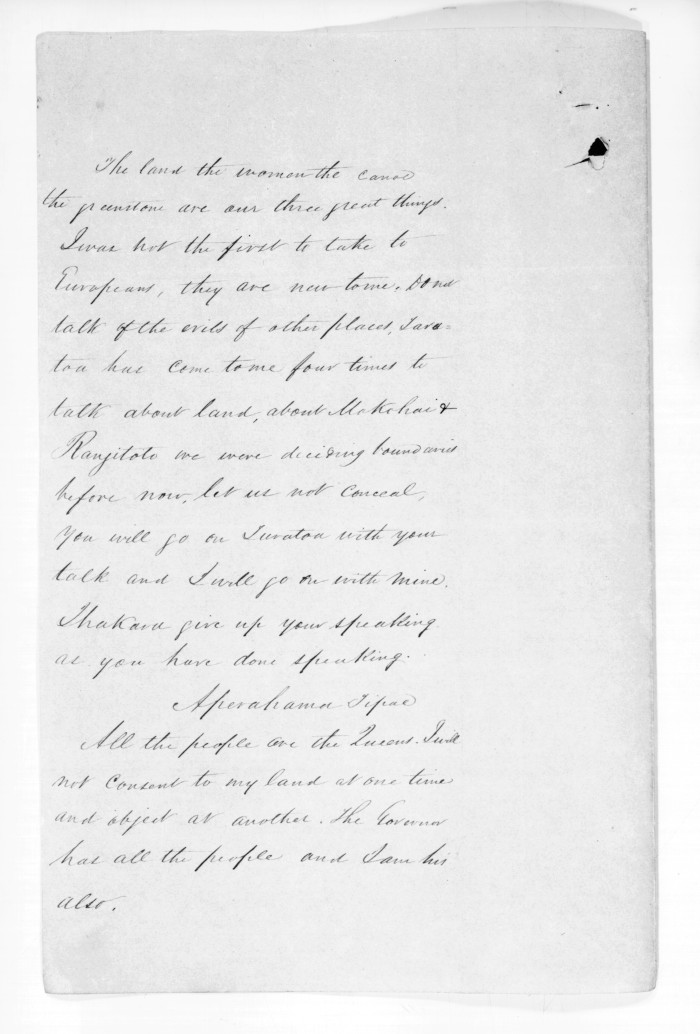 The land the women the canoe
the greenstone are our three great things.
I was not the first to take to
Europeans, they are new to me. Dond
talk of the evils of other places, Tara=
toa has come to me four times to
talk about land, about Mokohai &
Rangitoto we were deciding boundaries
before now, let us not conceal,
You will go on Turatoa with your
talk and I will go on with mine.
Ihakara give up your speaking
as you have done speaking.
Aperahama Tipae
All the people are the Queens. I will
not consent to my land at one time
and object at another. The Governor
has all the people and I am his
also.